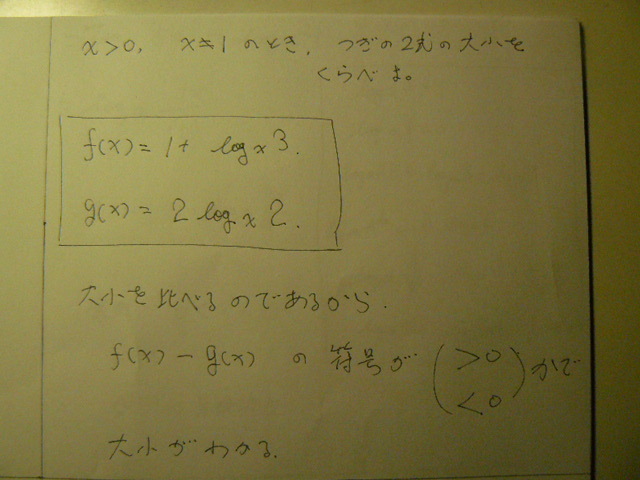 x>0, x≠1 のとき, つぎの2式の大小を
くらべよ。
f(x) = 1 + log x 3.
g(x) = 2 log x 2.
大小を比べるのであるから.
f(x) - g(x) の 符号が (>0
<0) かで
大小がわかる.